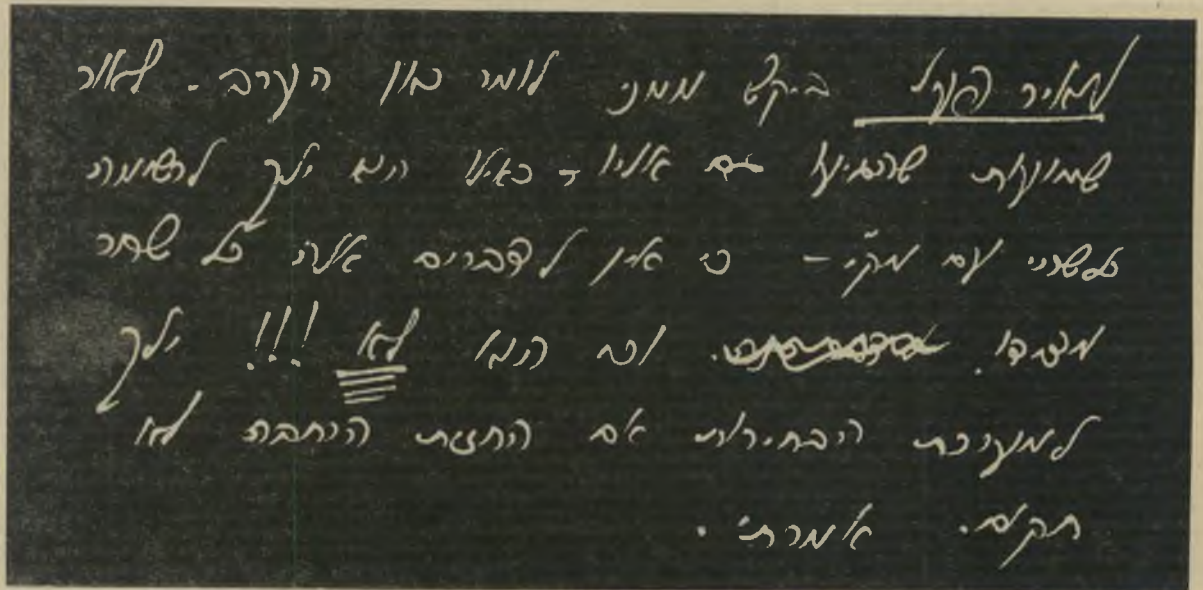 לאיר הנל ביקש ממני לומר כאן הערב - לאור
שמועות שהגיעו אליו - כאילו הוא ילך לרשימה
כלשהי עם מק"י - כי אין לדברים אלה כל שחר
מצדו. וכי הוא לא !!! ילך
למערכת הבחירות אם החזית הרחבה לא
תקום. אמרתי.